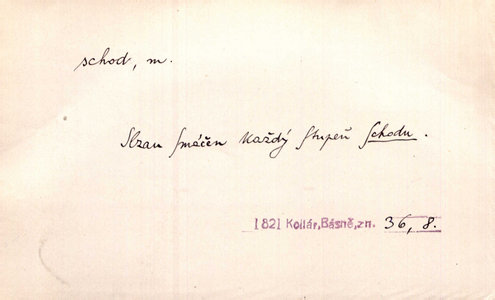 schod, m.
Slzau smáčen každý stupeň schodu.
1821 Kollár, Básně, zn. 36, 8.